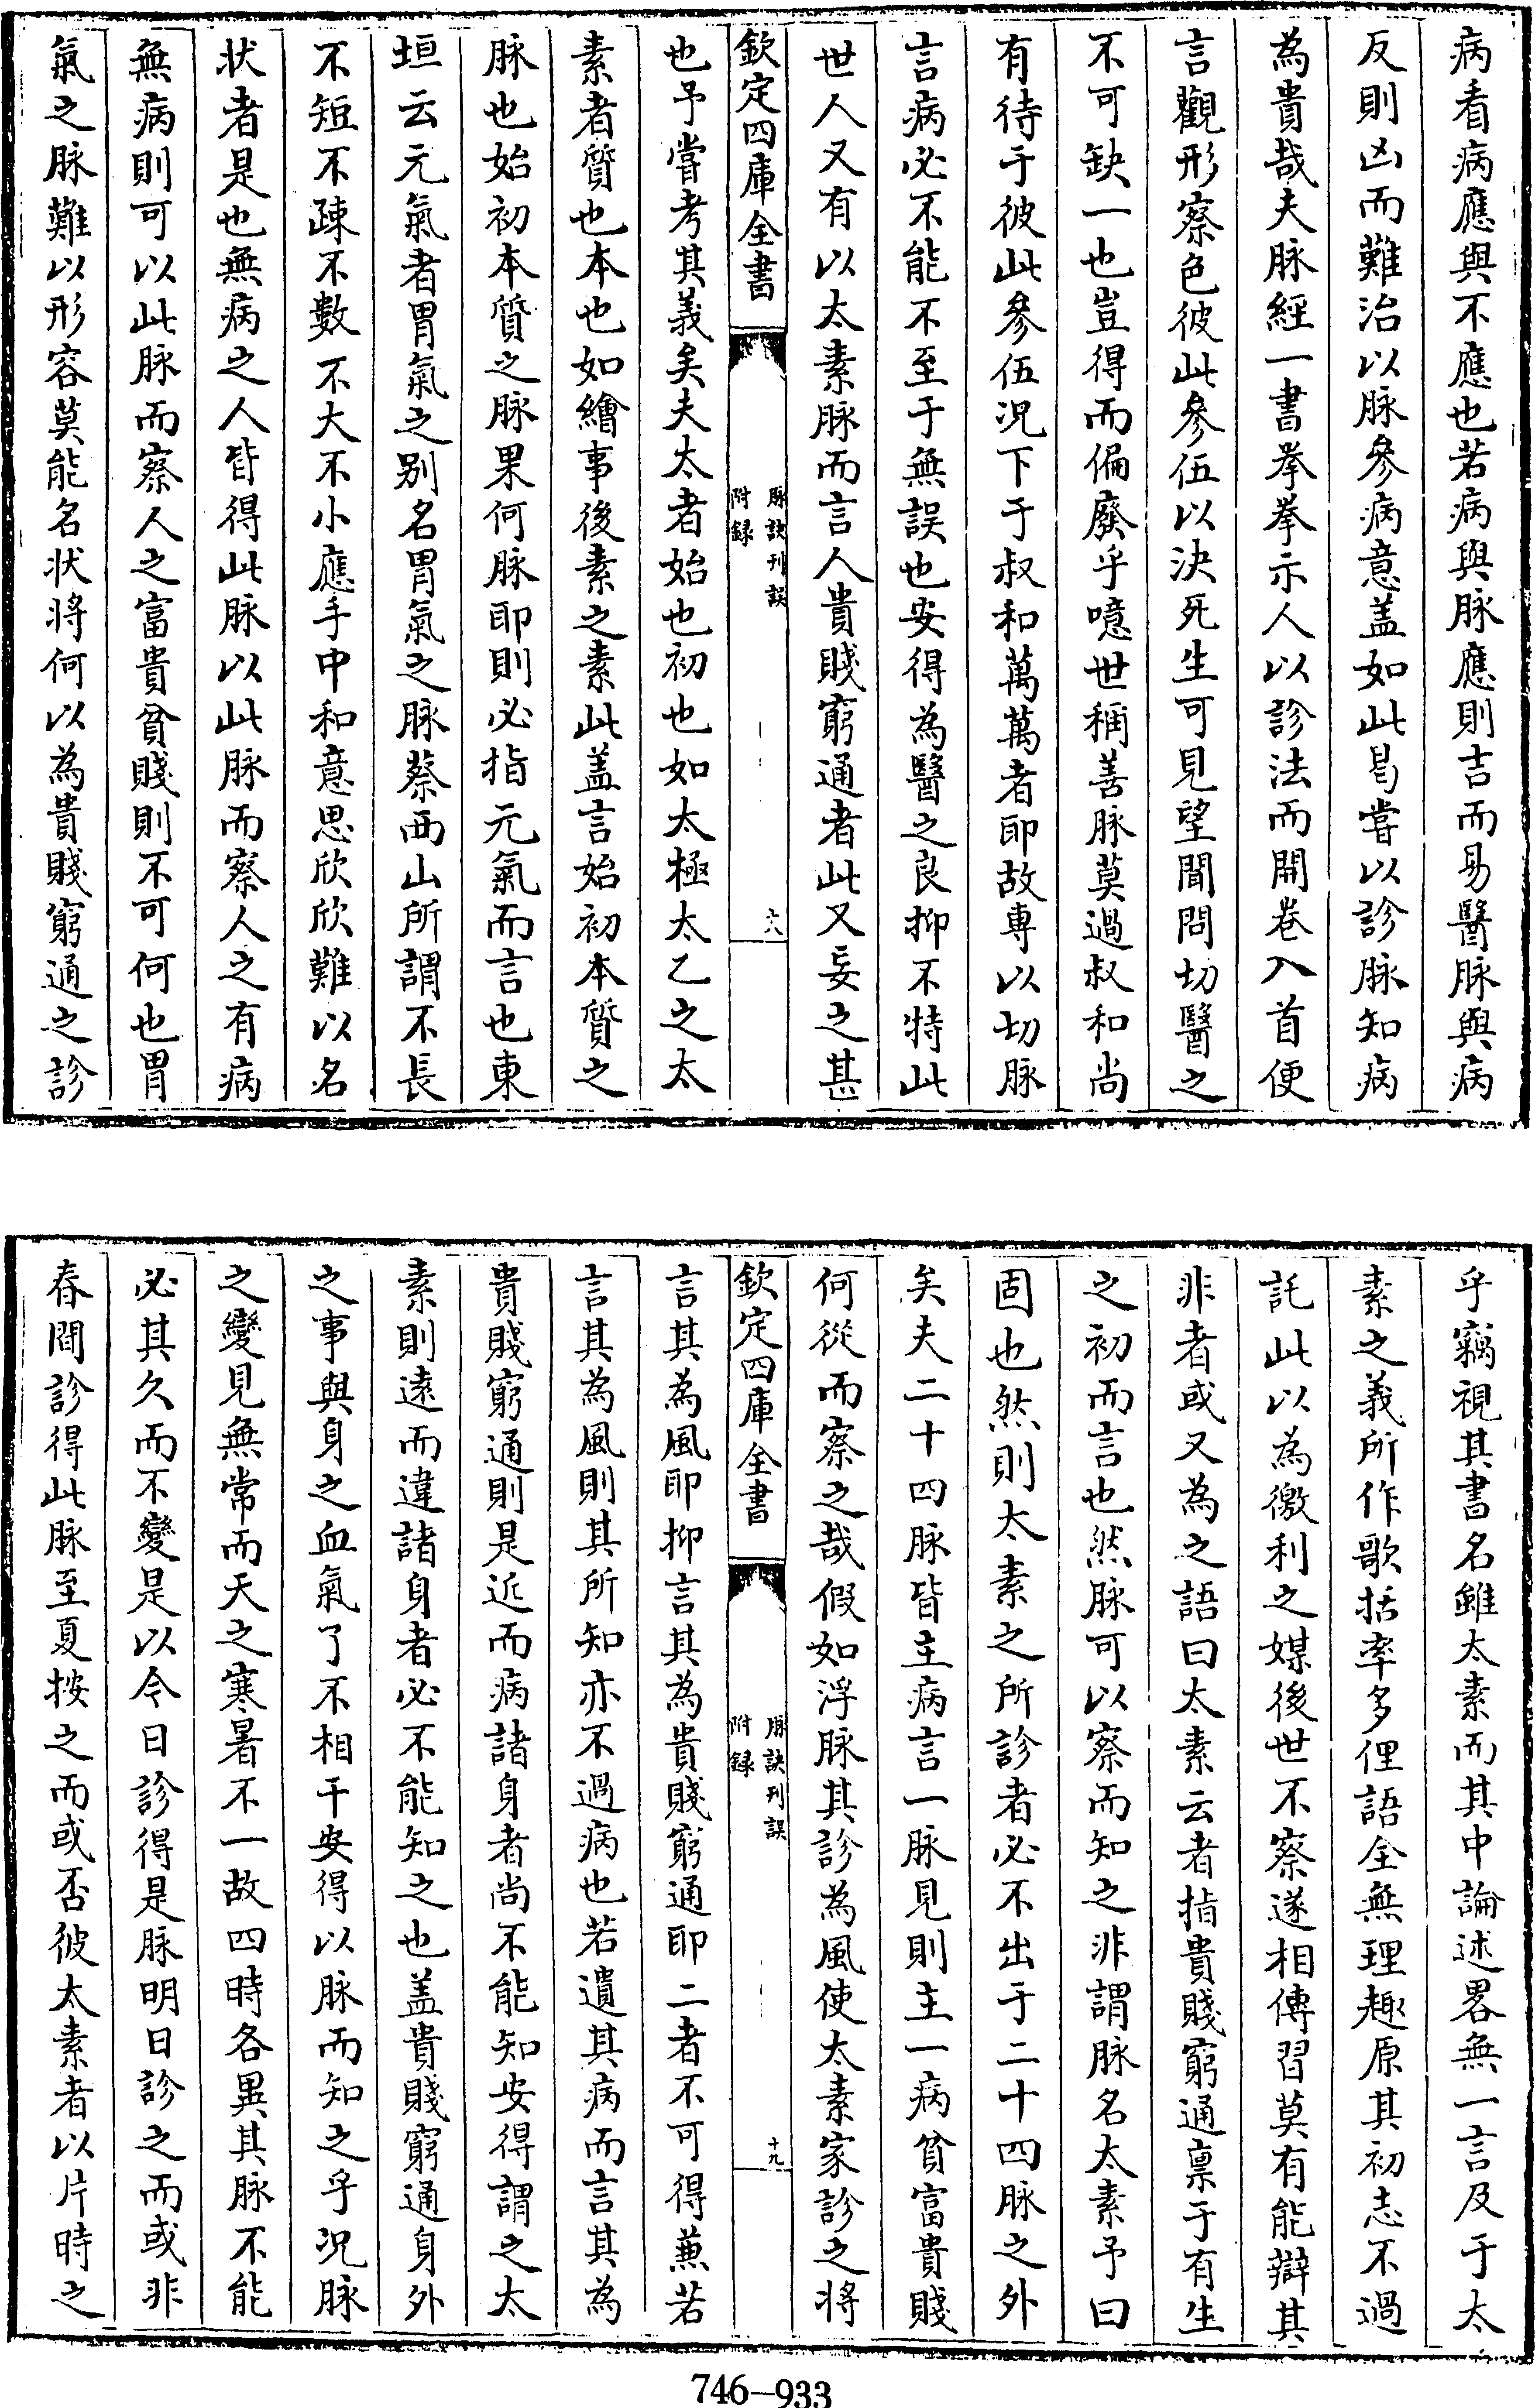 病看病應與不應也若病與脉應則吉而易醫脉與病
反則凶而難治以脉參病意盖如此曷嘗以診脉知病
為貴哉夫脉經一書拳拳示人以診法而開卷入首便
言觀形察色彼此參伍以決死生可見望聞問切醫之
不可缺一也豈得而偏廢乎噫世稱善脉莫過叔和尚
有待于彼此參伍况下于叔和萬萬者耶故專以切脉
言病必不能不至于無誤也安得為醫之良抑不特此
世人又有以太素脉而言人貴賤窮通者此又妄之甚
欽定四庫全書
脉訣刊誤
附録
十八
也予嘗考其義矣夫太者始也初也如太極太乙之太
素者質也本也如繪事後素之素此盖言始初本質之
脉也始初本質之脉果何脉耶則必指元氣而言也東
垣云元氣者胃氣之别名胃氣之脉蔡西山所謂不長
不短不疎不數不大不小應手中和意思欣欣難以名
狀者是也無病之人皆得此脉以此脉而察人之有病
無病則可以此脉而察人之富貴貧賤則不可何也胃
氣之脉難以形容莫能名状将何以為貴賤窮通之診
乎竊視其書名雖太素而其中論述畧無一言及于太
素之義所作歌括率多俚語全無理趣原其初志不過
託此以為徼利之媒後世不察遂相傳習莫有能辯其
非者或又為之語曰太素云者指貴賤窮通禀于有生
之初而言也然脉可以察而知之非謂脉名太素予曰
固也然則太素之所診者必不出于二十四脉之外
矣夫二十四脉皆主病言一脉見則主一病貧富貴賤
何從而察之哉假如浮脉其診為風使太素家診之将
欽定四庫全書
脉訣刊誤
附録
十九
言其為風耶抑言其為貴賤窮通耶二者不可得兼若
言其為風則其所知亦不過病也若遺其病而言其為
貴賤窮通則是近而病諸身者尚不能知安得謂之太
素則遠而違諸身者必不能知之也盖貴賤窮通身外
之事與身之血氣了不相干安得以脉而知之乎况脉
之變見無常而天之寒暑不一故四時各異其脉不能
必其久而不變是以今日診得是脉明日診之而或非
春間診得此脉至夏按之而或否彼太素者以片時之
746-933